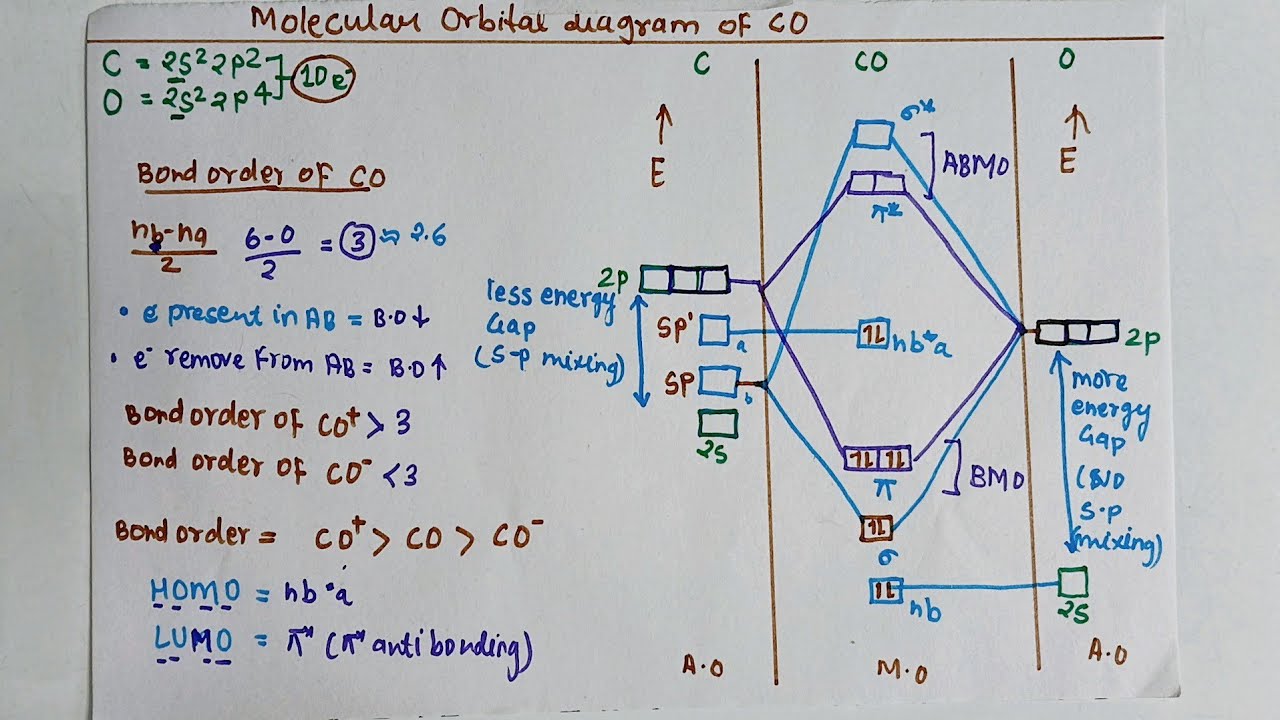 Molecular Orbital diagram of CO
C = 2S² 2P²
O = 2S² 2P⁴
10e⁻
Bond order of CO
nb-na
2
6-0
2
= 3 ≈ 2.6
• e⁻ present in AB = B.O↓
• e⁻ remove from AB = B.O↑
Bond order of CO⁺ > 3
Bond order of CO⁻ <3
Bond order = CO⁺ > CO > CO⁻
HOMO = nb*a
LUMO = π* (π* anti bonding)
C
CO
O
E
E
σ*
ABMO
π*
2P
less energy
Gap
(S-P mixing)
SP'
a
nb*a
SP
b
2S
2P
more
energy
Gap
(NO
S-P
mixing)
π
BMO
σ
nb
2S
A.O
M.O
A.O